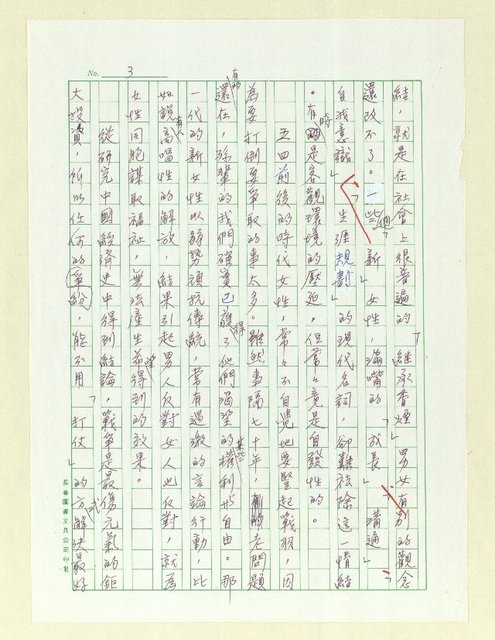 No. 3
結，就是在社會上很普遍的「繼承香煙」男女有別的觀念
還改不了。一些「新」女性，滿嘴的「成長」「溝通」
自我意識」「生涯規劃」的現代名詞，卻難袪除這一情結
。有時是客觀環境的壓迫，但常常竟是自發性的。
五四前後的時代女性，常常不自覺地要豎起戰羽，因
為要打倒要爭取的事太多。雖然事隔七十年，有些老問題
還在，孫輩的我們確實已獲得了他們渴望的權利和自由。那
一代的新女性以弱勢頑抗傳統，常有過激的言論行動，比
如說高唱性的解放，結果引起男人反對女人也反對，就為
女性同胞謀取福祉，無法產生希望得到的效果。
從研究中國經濟史中得到結論，戰爭是最傷元氣的鉅
大投資，所以任何的爭紛，能不用「打仗」的方式解決最好
長春圖書文具公司印製